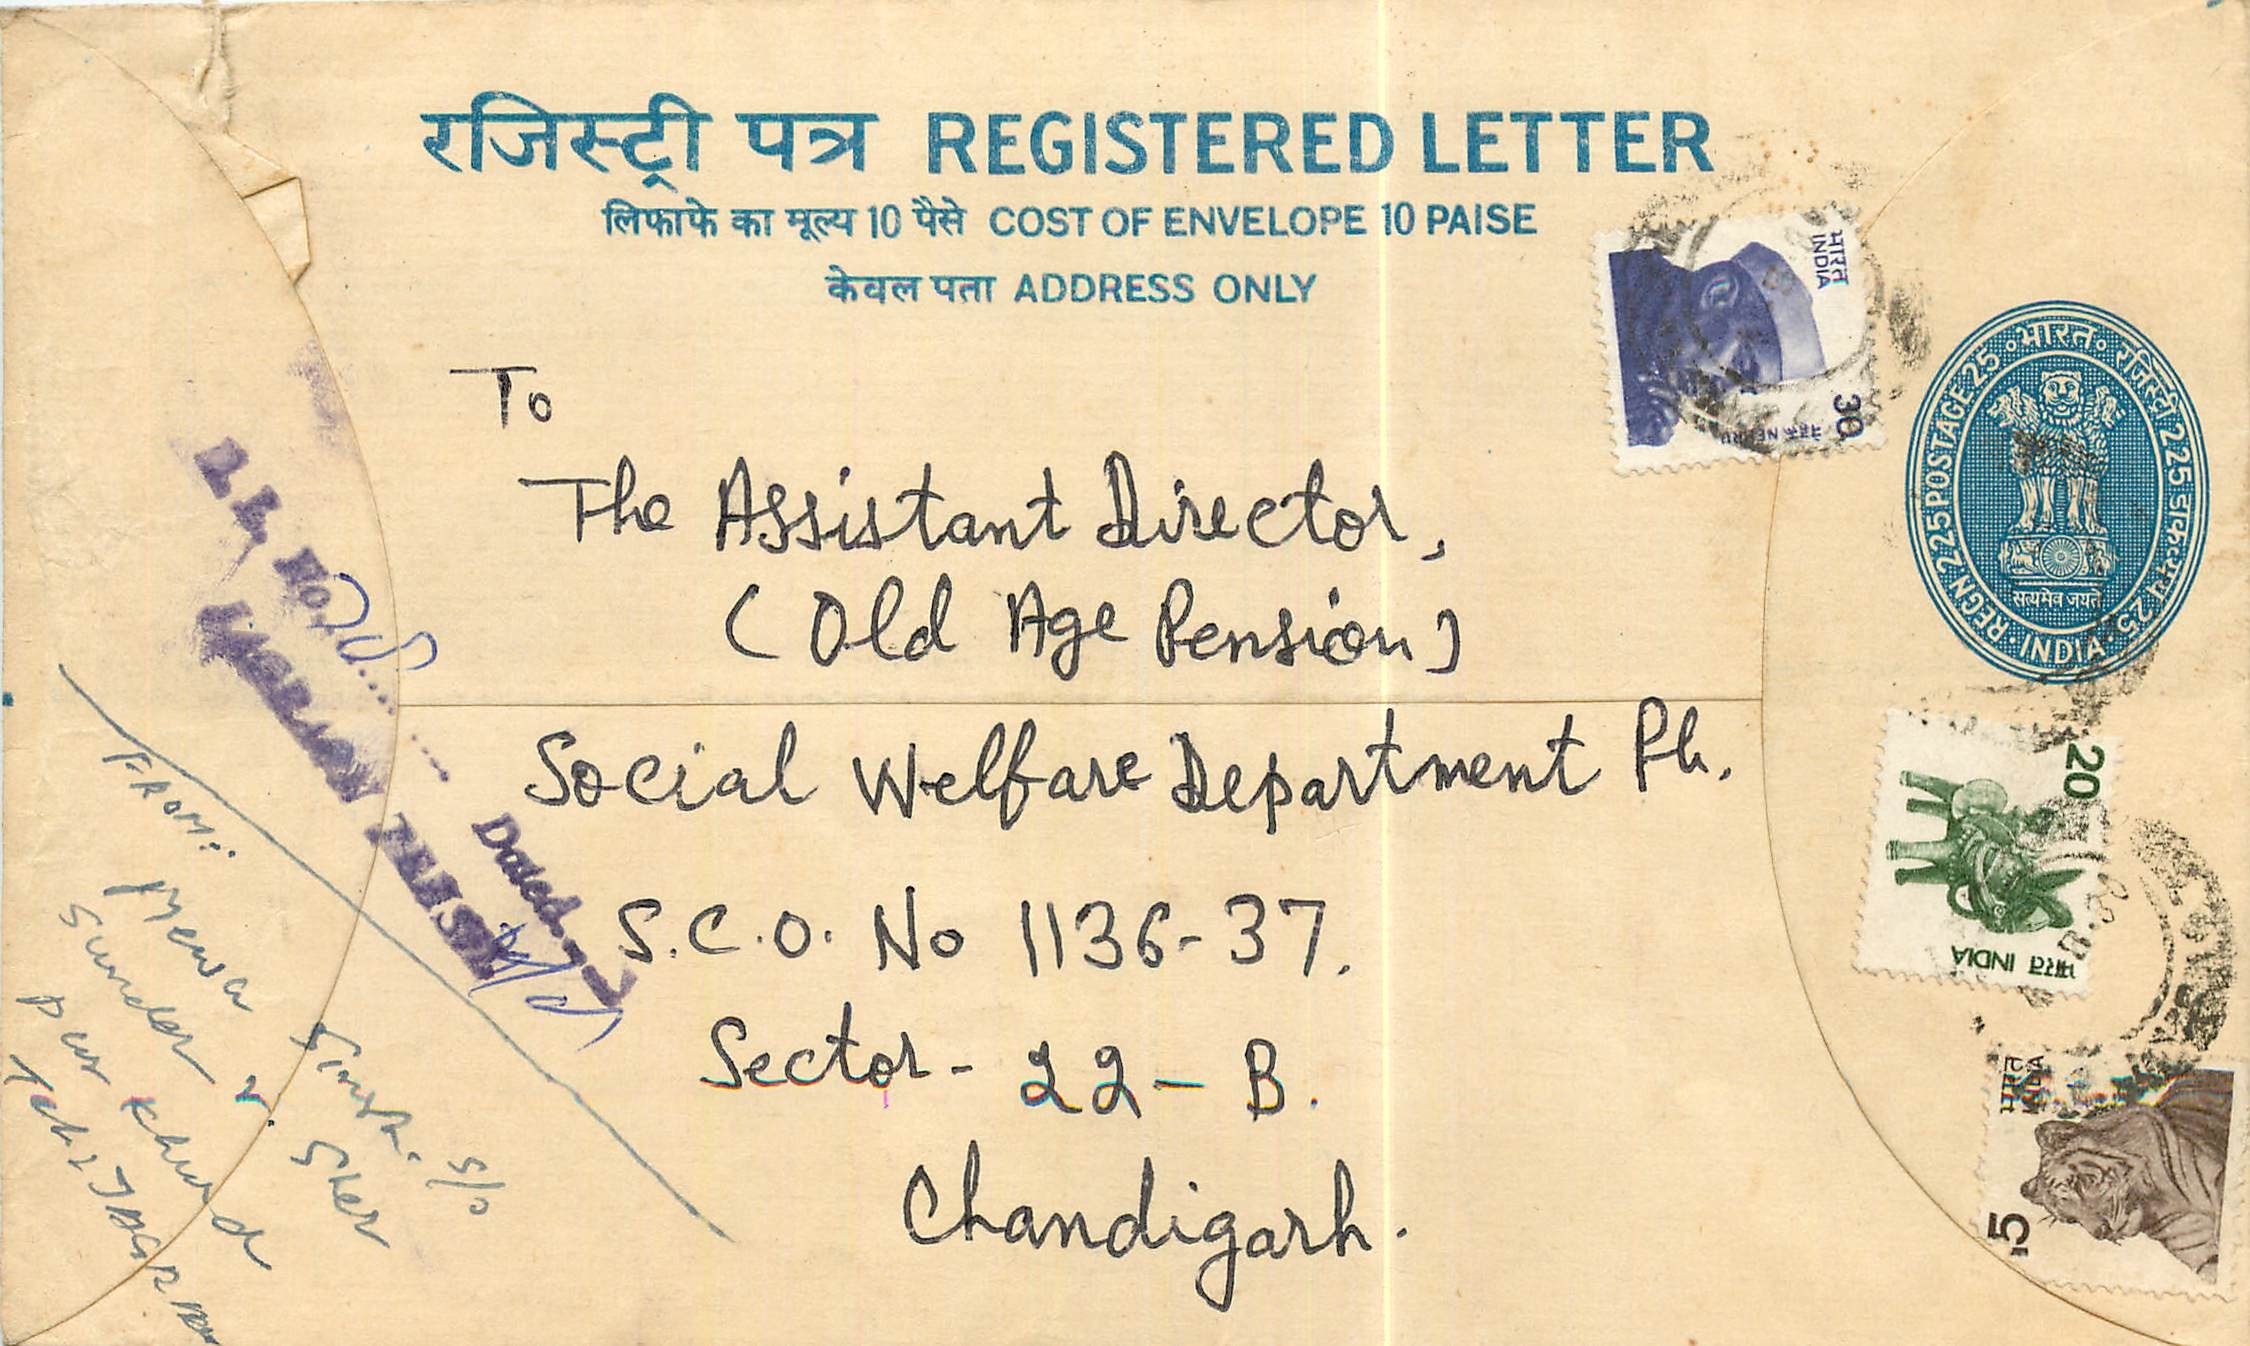 रजिस्ट्री पत्र REGISTERED LETTER
लिफाफे का मूल्य 10 पैसे COST OF ENVELOPE 10 PAISE
केवल पता ADDRESS ONLY
भारत
INDIA
30
नेहरू NEHRU
REGN 225 POSTAGE 25 भारत रजिस्ट्री 225 डाक-व्यय 25
सत्यमेव जयते
INDIA
To
The Assistant Director,
(Old Age Pension)
Social Welfare Department Pb.
S.C.O. No 1136-37.
Sector- 22-B.
Chandigarh.
20
भारत INDIA
भारत
INDIA
5
R.L. No.
Dated
FROM:
Mewa Singh. S/o
Sunder Sher
pur Khurd